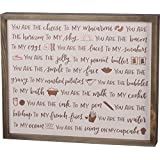 YOU ARE THE cheese TO MY macaroni YOU ARE
THE horizon TO MY sky YOU ARE THE bacon
TO MY eggs YOU ARE THE laces TO MY sneakers
YOU ARE THE jelly TO MY peanut butter YOU
ARE THE smile TO MY face YOU ARE THE
gravy TO MY mashed potatoes YOU ARE THE bubbles
TO MY bath YOU ARE THE milk TO MY cookie
YOU ARE THE ink TO MY pen YOU ARE THE
ketchup TO MY french fries YOU ARE THE water
TO MY ocean YOU ARE THE icing ON MY cupcake